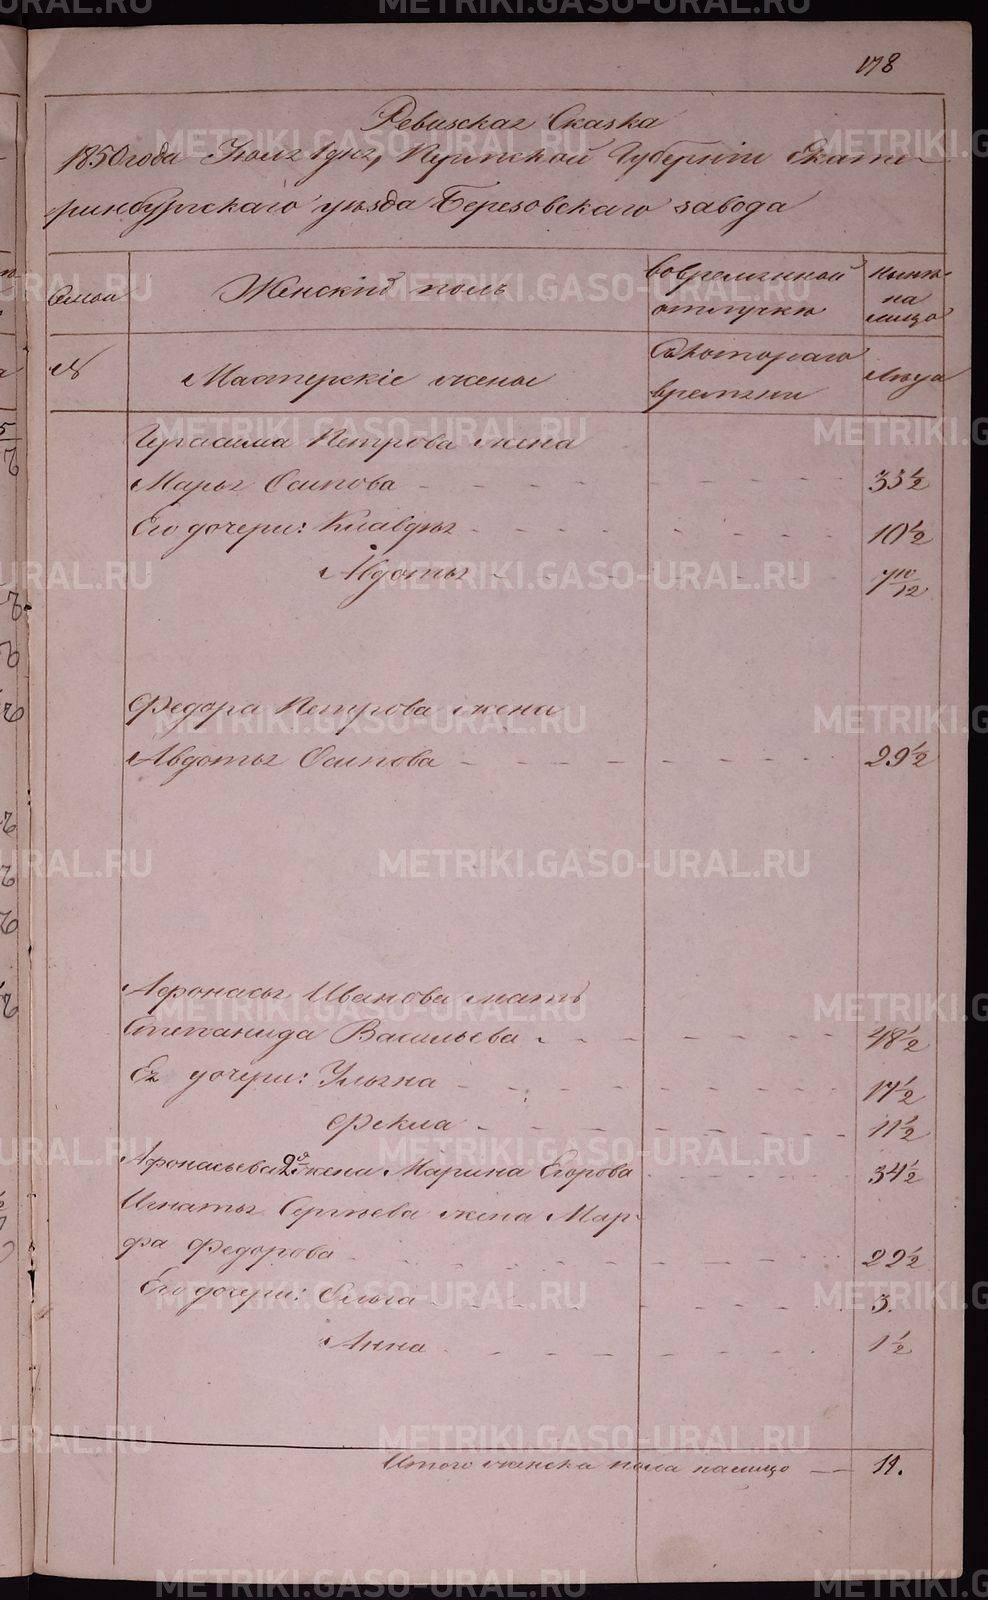 178
Ревизская Сказка
1850 года Июля 1 дня, Пермской Губернiи Екате-
ринбургскаго уѣзда Березовскаго завода
Семьи
Женскiй полъ
Во временной
отлучкѣ
Нынѣ
на
лицо
№
Мастерскiе жены
Съ котораго
времени
Лѣта
Герасима Петрова жена
Марья Осипова 33 1/2
Его дочери: Клавдея 10 1/2
Авдотья 7 10/12
Федора Петрова жена
Авдотья Осипова 29 1/2
Афонасья Иванова мать
Степанида Васильева 48 1/2
Ея дочери: Ульяна 17 1/2
Фекла 11 1/2
Афонасьева 2я жена Марина Егорова 34 1/2
Игнатья Сергѣева жена Мар-
фа Федорова 22 1/2
Его дочери: Ольга 3.
Анна 1 1/2
Итого женска пола налицо 11.
METRIKI.GASO-URAL.RU